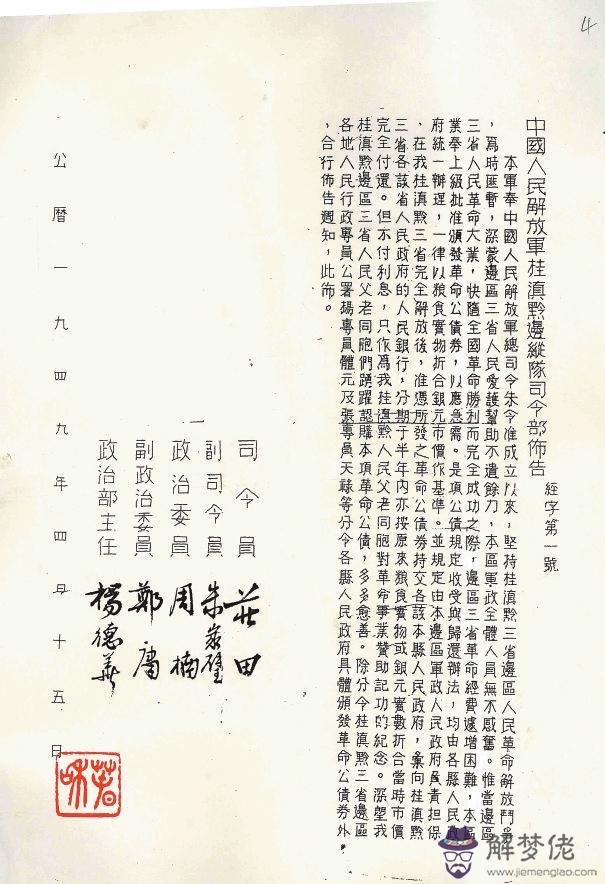 4
中國人民解放軍桂滇黔邊縱隊司令部佈告
經字第一號
本軍奉中國人民解放軍總司令朱令准成立以來，堅持桂滇黔三省邊區人民革命解放鬥爭
，爲時匪暫，深蒙邊區三省人民愛護幫助不遺餘力，本區軍政全體人員無不感奮。惟當邊區
三省人民革命大業，快隨全國革命勝利而完全成功之際，邊區三省革命經費遽增困難，本區
業奉上級批准頒發革命公債券，以應急需。是項公債規定收受與歸還辦法，均由各縣人民政
府統一辦理，一律以粮食實物折合銀元市價作基準。並規定由本邊區軍政人民政府負責担保
，在我桂滇黔三省完全解放後，准憑所發之革命公債券持交各該本縣人民政府，彙向桂滇黔
三省各該省人民政府的人民銀行，分期于半年內亦按原來粮食實物或銀元實數折合當時市價
完全付還。但不付利息，只作爲我桂滇黔人民父老同胞對革命事業贊助記功的紀念。深望我
桂滇黔邊區三省人民父老同胞們踴躍認購本項革命公債，多多愈善。除分令桂滇黔三省邊區
各地人民行政專員公署楊專員體元及張專員天祿等分令各縣人民政府具體頒發革命公債券外
，合行佈告週知，此佈。
司令員 莊田
副司令員 朱家璧
政治委員 周楠
副政治委員 鄭庸
政治部主任 楊德華
公曆一九四九年四月十五日
解梦佬
www.jiemenglao.com